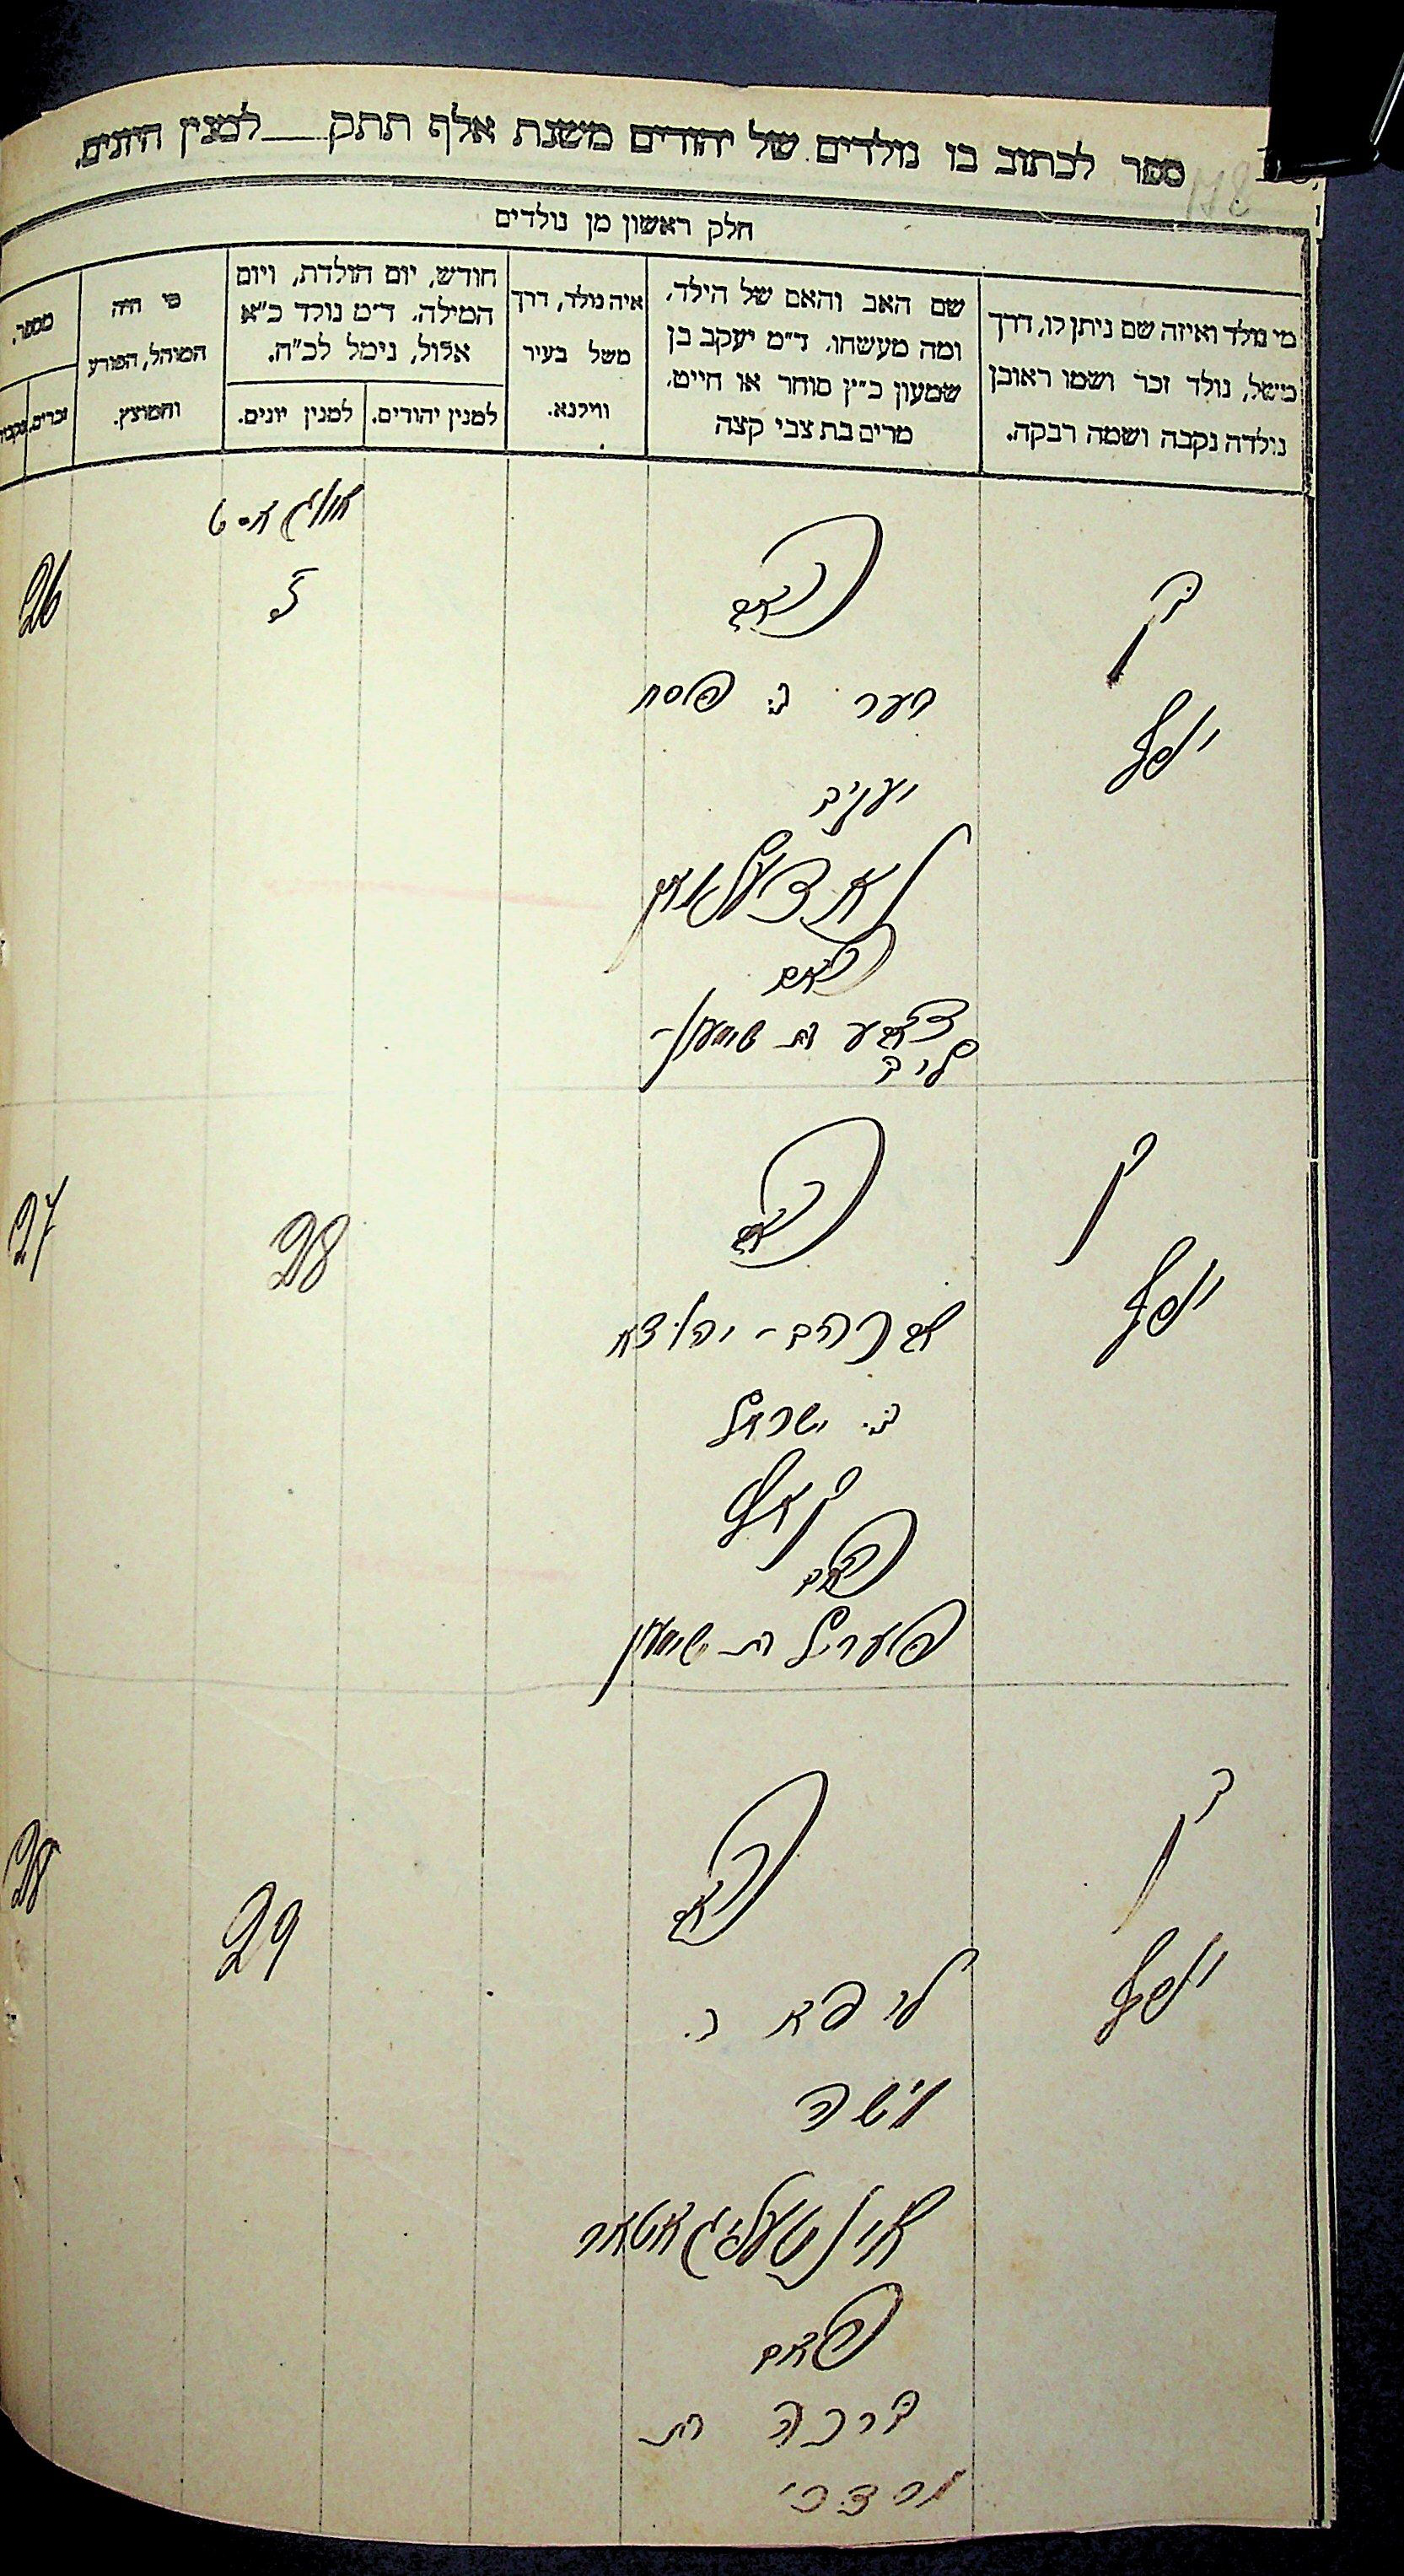 ספר לכתוב בו נולדים של יהודים משנת אלף תתק___למנין היונים.
118
חלק ראשון מן נולדים
מי נולד ואיזה שם ניתן לו, דרך
משל, נולד זכר ושמו ראובן
נולדה נקבה ושמה רבקה.
שם האב והאם של הילד,
ומה מעשהו. ד"מ יעקב בן
שמעון כ"ץ סוחר או חייט,
מרים בת צבי קצה
איה נולד, דרך
משל בעיר
ווילנא.
חודש, יום הולדת, ויום
המילה. ד"מ נולד כ"א
אלול, נימל לכ"ח.
למנין יהודים.
למנין יונים.
מי היה
המוהל, הפורע
והמוצץ.
מספר.
זכרים.
נקבות
אויגאסט
בן
יוסף
האב
בער ב. פסח
יעקב
האם
ת שמעון
ליב
26
בן
יוסף
האב
אברהם - יהודא
ב. ישראל
האם
פערל ת שמעון
28
27
בן
יוסף
האב
ליפא ב.
משה
האם
ברכה ת
מרדכי
29
28